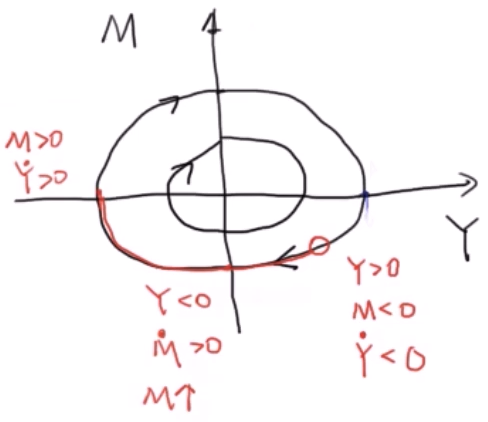 M
M>0
Ẏ>0
Y
Y<0
Ṁ>0
M↑
Y>0
M<0
Ẏ<0